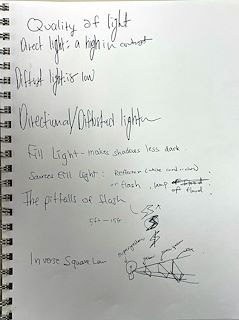 Quality of light
Direct light: a high in contrast
Diffust light is low
Directional/Diffusted light
Fill Light - makes shadows less dark.
Sources Fill light: Reflector (white card)
or flash, lamp
of flood.
The pitfalls of flash
5ft - 15ft
Inverse Square Law